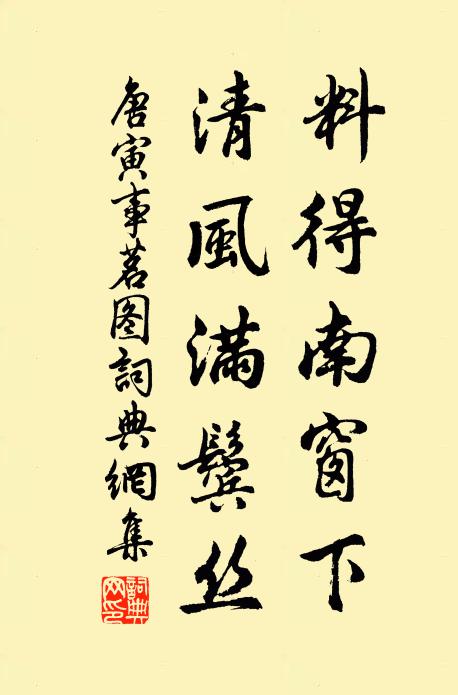 料得南窗下
清風滿鬢丝
唐寅事茗图詞典網集
詞典網印